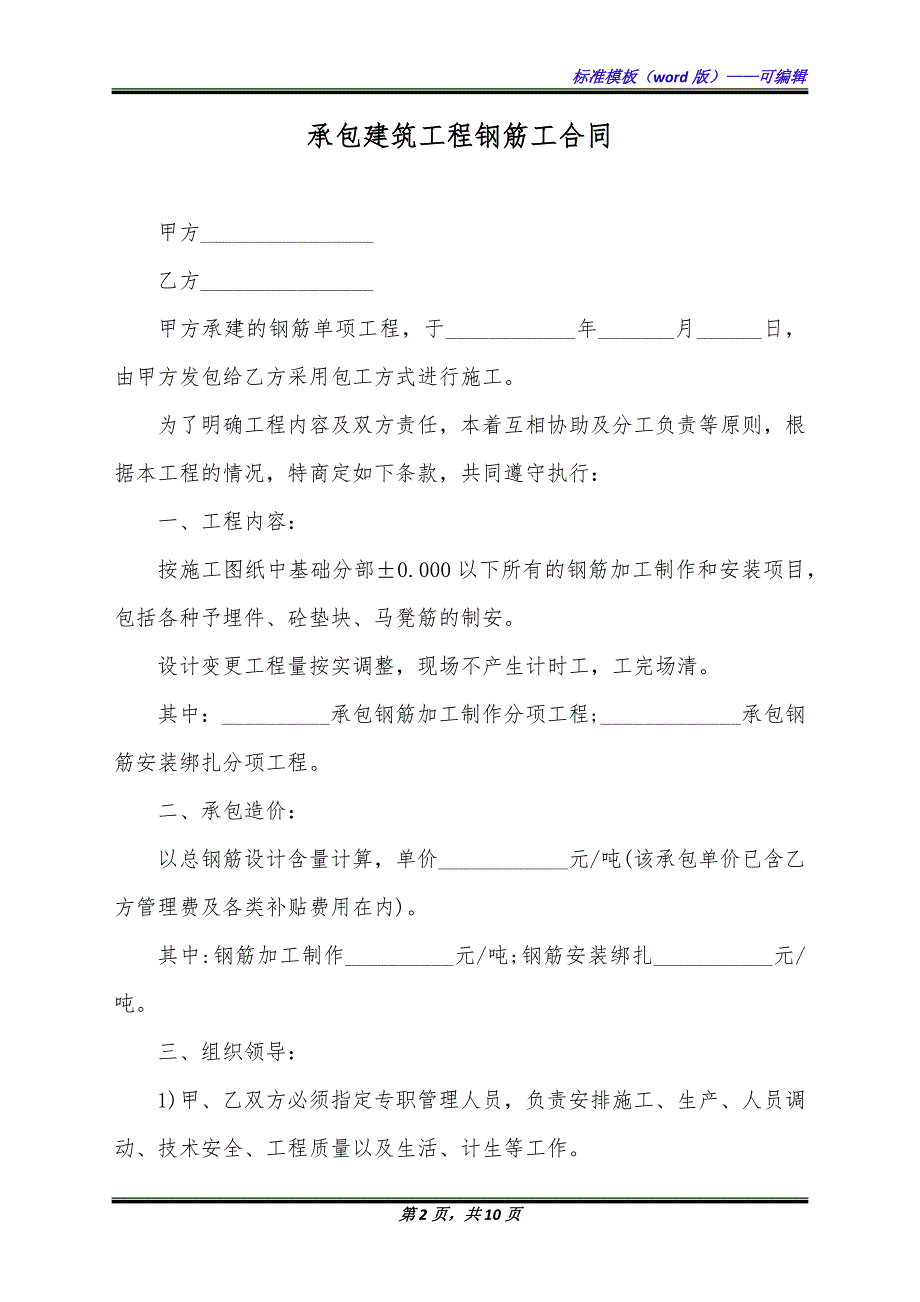 标准模板（word 版）——可编辑
承包建筑工程钢筋工合同
甲方________________
乙方________________
甲方承建的钢筋单项工程，于____________年_______月______日，
由甲方发包给乙方采用包工方式进行施工。
为了明确工程内容及双方责任，本着互相协助及分工负责等原则，根
据本工程的情况，特商定如下条款，共同遵守执行：
一、工程内容：
按施工图纸中基础分部±0.000 以下所有的钢筋加工制作和安装项目，
包括各种予埋件、砼垫块、马凳筋的制安。
设计变更工程量按实调整，现场不产生计时工，工完场清。
其中：__________承包钢筋加工制作分项工程;_____________承包钢
筋安装绑扎分项工程。
二、承包造价：
以总钢筋设计含量计算，单价____________元/吨(该承包单价已含乙
方管理费及各类补贴费用在内)。
其中:钢筋加工制作__________元/吨;钢筋安装绑扎___________元/
吨。
三、组织领导：
1)甲、乙双方必须指定专职管理人员，负责安排施工、生产、人员调
动、技术安全、工程质量以及生活、计生等工作。
第 2 页，共 10 页